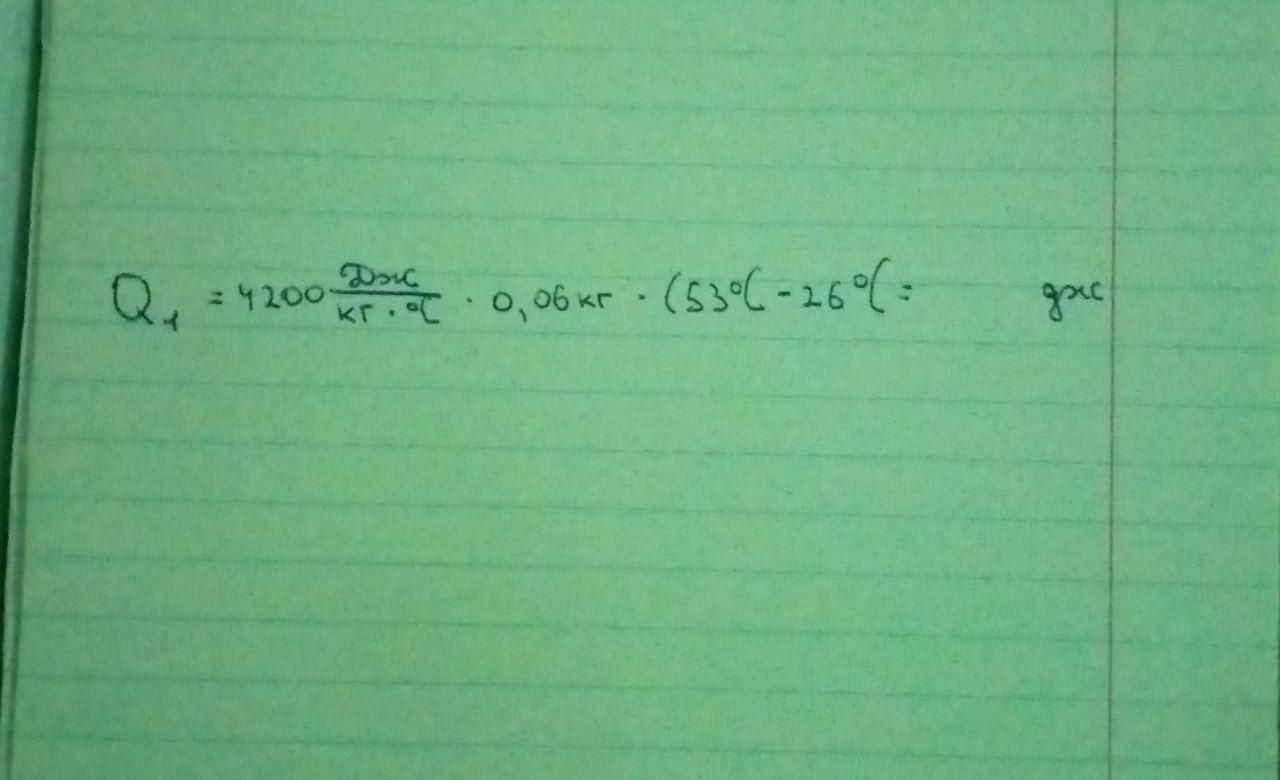 Q₁ = 4200 Дж/кг·°С · 0,06 кг · (53°С - 26°С = дж